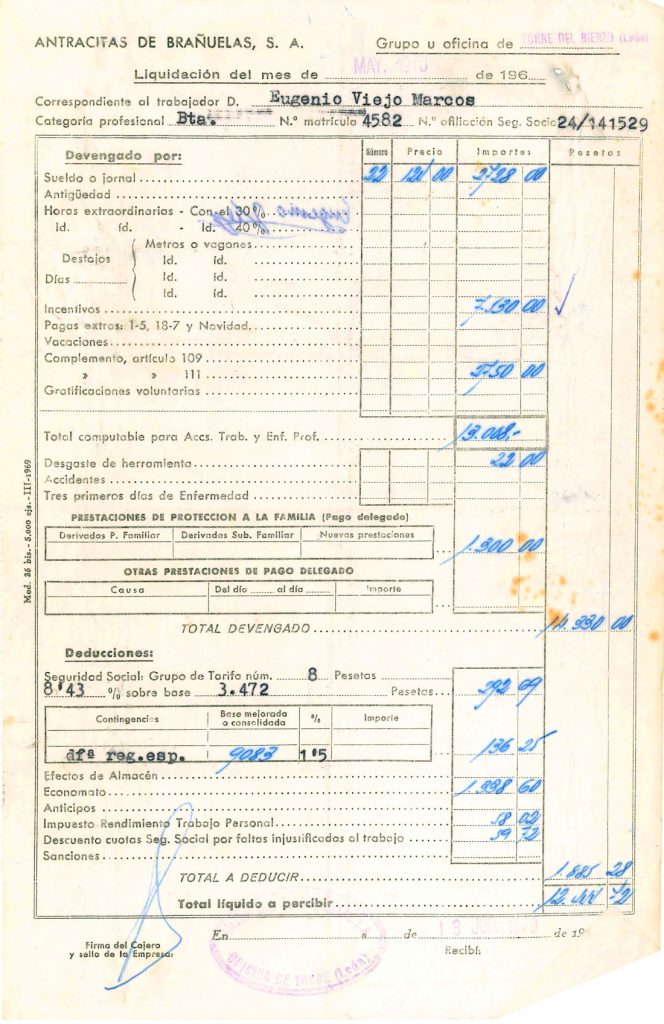 ANTRACITAS DE BRAÑUELAS, S. A. Grupo u oficina de TORRE DEL BIERZO (León)
Liquidación del mes de MAY. 1970 de 196
Correspondiente al trabajador D. Eugenio Viejo Marcos
Categoría profesional Bta. N.º matrícula 4582 N.º afiliación Seg. Socia 24/141529
Devengado por: Número Precio Importes Pesetas
Sueldo o jornal 22 124 00 2728 00
Antigüedad
Horas extraordinarias - Con el 30 %
Id. íd. - Id. 40 %
Metros o vagones
Destajos Id. íd.
Días Id. íd.
Id. íd.
Incentivos 7.130 00
Pagas extras: 1-5, 18-7 y Navidad
Vacaciones
Complemento, artículo 109
» » 111 2750 00
Gratificaciones voluntarias
Total computable para Accs. Trab. y Enf. Prof. 13.008,-
Desgaste de herramienta 22 00
Accidentes
Tres primeros días de Enfermedad
PRESTACIONES DE PROTECCION A LA FAMILIA (Pago delegado)
Derivados P. Familiar Derivados Sub. Familiar Nuevas prestaciones
1.300 00
OTRAS PRESTACIONES DE PAGO DELEGADO
Causa Del día al día Importe
TOTAL DEVENGADO 14.330 00
Deducciones:
Seguridad Social: Grupo de Tarifa núm. 8 Pesetas
8'43 % sobre base 3.472 Pesetas 292 69
Contingencias Base mejorada o consolidada % Importe
dfª reg.esp. 9083 1'5 136 25
Efectos de Almacén
Economato 1.338 60
Anticipos
Impuesto Rendimiento Trabajo Personal 58 02
Descuento cuotas Seg. Social por faltas injustificadas al trabajo 59 72
Sanciones
TOTAL A DEDUCIR 1.885 28
Total líquido a percibir 12.444 72
En a de 13 JUN. 1970 de 19
Firma del Cajero
y sello de la Empresa: Recibí:
OFICINA DE TORRE (León)
Mod. 35 bis. - 5.000 ejs. - III-1969